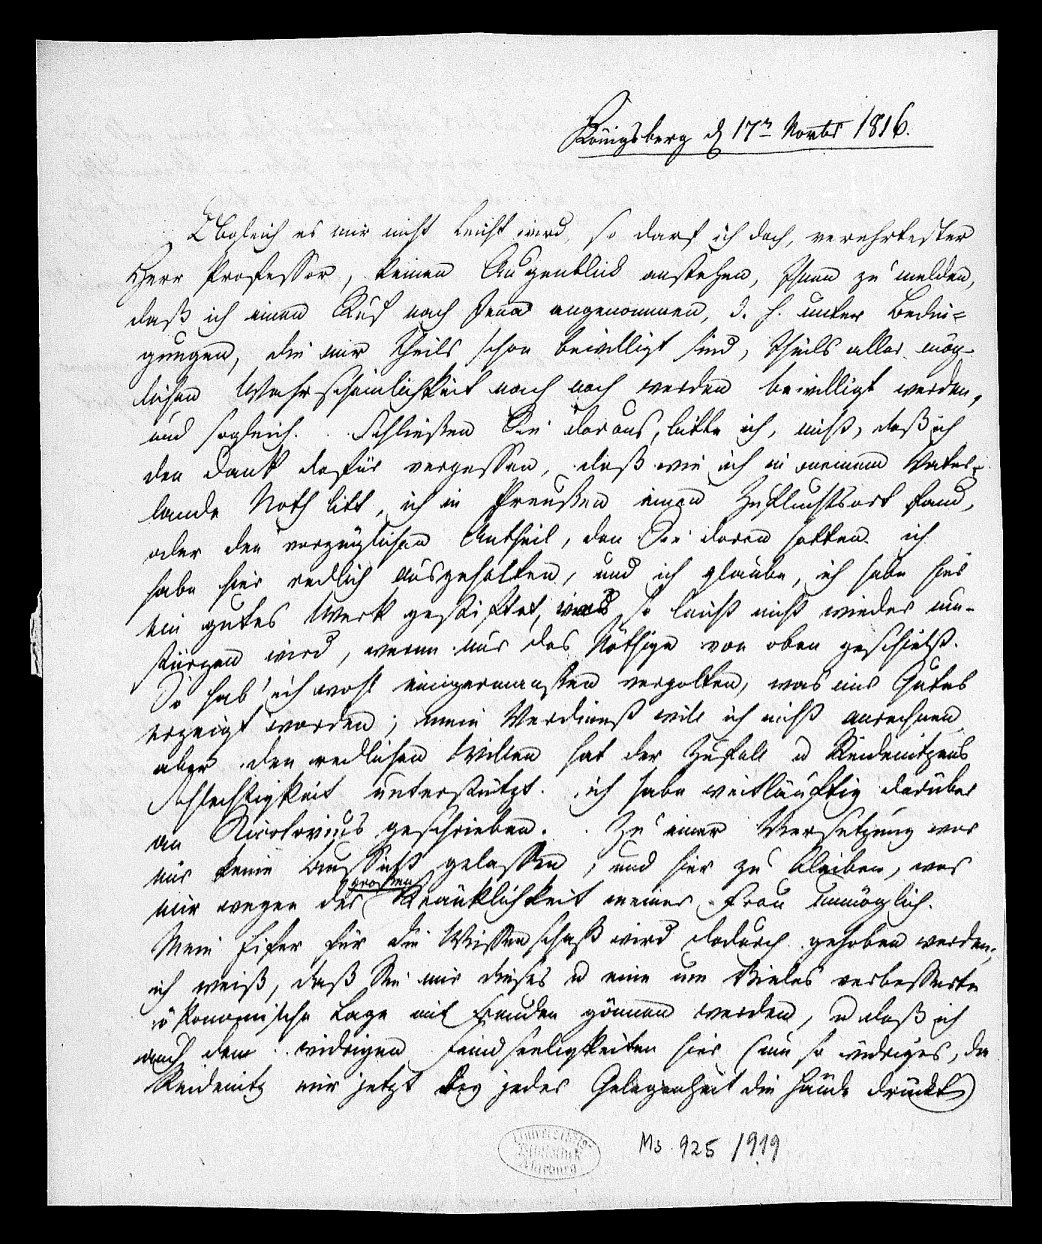 Königsberg d 17n Novbr 1816.
Obgleich es mir nicht leicht wird, so darf ich doch, verehrtester
Herr Professor, keinen Augenblick anstehen, Ihnen zu melden,
daß ich einen Ruf nach Jena angenommen, d. h. unter Bedin=
gungen, die mir theils schon bewilligt sind, theils aller mög-
lichen Wahrscheinlichkeit nach noch werden bewilligt werden,
und sogleich. Schließen Sie daraus, bitte ich, nicht, daß ich
den Dank dafür vergessen, daß wie ich in meinem Vater-
lande Noth litt, ich in Preußen einen Zufluchtsort fand,
oder den vorzüglichen Antheil, den Sie daran hatten. ich
habe hier redlich ausgehalten, und ich glaube, ich habe hier
ein gutes Werk gestiftet, was so leicht nicht wieder um-
stürzen wird, wenn nur das Nöthige von oben geschieht.
So hab' ich wohl einigermaaßen vergolten, was mir Gutes
erzeigt worden; mein Verdienst will ich nicht anrechnen
aber den redlichen Willen hat der Zufall u Reidenitzens
Schlechtigkeit unterstützt. ich habe weitläuftig darüber
an Nicolovius geschrieben. Zu einer Versetzung war
mir keine Aussicht gelassen, und hier zu bleiben, war
mir wegen der großen Kränklichkeit meiner Frau unmöglich.
Mein Eifer für die Wissenschaft wird dadurch gehoben werden,
ich weiß, daß Sie mir dieses u eine um Vieles verbesserte
ökonomische Lage mit Freuden gönnen werden, u daß ich
auch den widrigen Feindseeligkeiten hier
Reidenitz mir jetzt bey jeder Gelegenheit die Hände drückt)
Universitäts-
Bibliothek
Marburg
Ms 925/1919